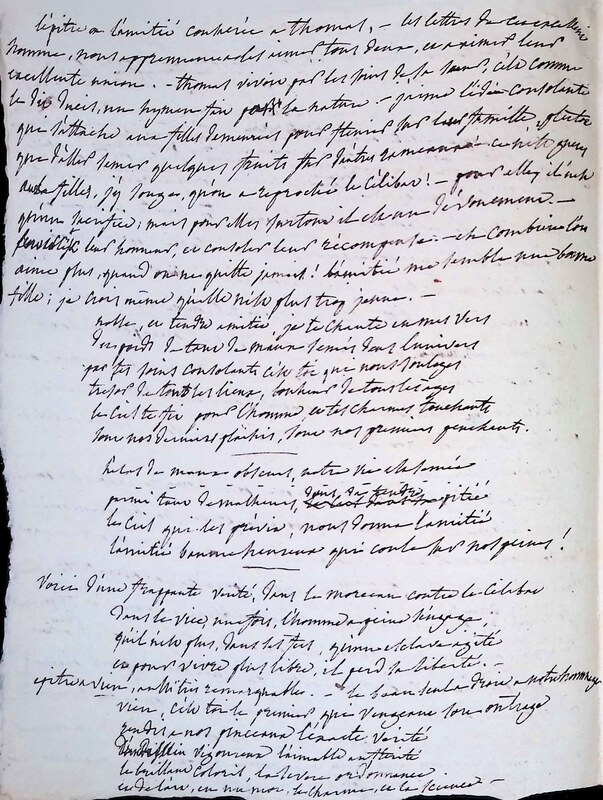 l'épitre a l'amitié conférée a thomas, - les lettres de cet excellent
homme, nous apprennent a les aimer tous deux, et a aimer leur
excellente union. - thomas vivoit par les soins de sa soeur, c'étoit comme
le dit Ducis, un hymen fait par la nature. - j'aime l'idée consolante
que s'attache aux filles demeurées pour fleurir sur la famille, plutot
que d'aller semer quelques fruits sur d'autres rameaux -
aux filles, j'y songe, qu'on a reproché le célibat! - pour elles il n'est
qu'un sacrifice; mais pour elles surtout il est un dévouement. -
leur honneur, et consoler leur récompense. - et combien l'on
aime plus, quand on ne quitte jamais! l'amitié me semble une bonne
fille; je crois même qu'elle n'est plus trop jeune. -
noble, et tendre amitié, je te chante en mes vers
du poids de tant de maux semés dans l'univers
par tes soins consolants c'est toi que nous soulages
trésor de tous les lieux, bonheur de tous les ages
le ciel te fit pour l'homme et tes charmes touchants
sont nos derniers plaisirs, sont nos premiers penchants.
hélas de maux obscurs, notre vie est semée
parmi tant de malheurs, pitié
le Ciel qui les prévit, nous donna l'amitié
l'amitié baume heureux qui coule sur nos peines!
Voici d'une frappante vérité, dans le morceau contre le célibat
Dans le vice une fois, l'homme a peine s'engage,
qu'il n'est plus, dans les fers, qu'un esclave agité
et pour vivre plus libre, il perd sa liberté. -
epitre a Vien, remarquable. - le beau seul a droit a notre hommage
vien, c'est toi le premier, que vengeant son outrage
rendis a nos pinceaux l'exacte vérité
vigoureux l'aimable austérité
le brillant coloris, la sévère ordonnance
et de l'art, en un mot, le charme, et la science -